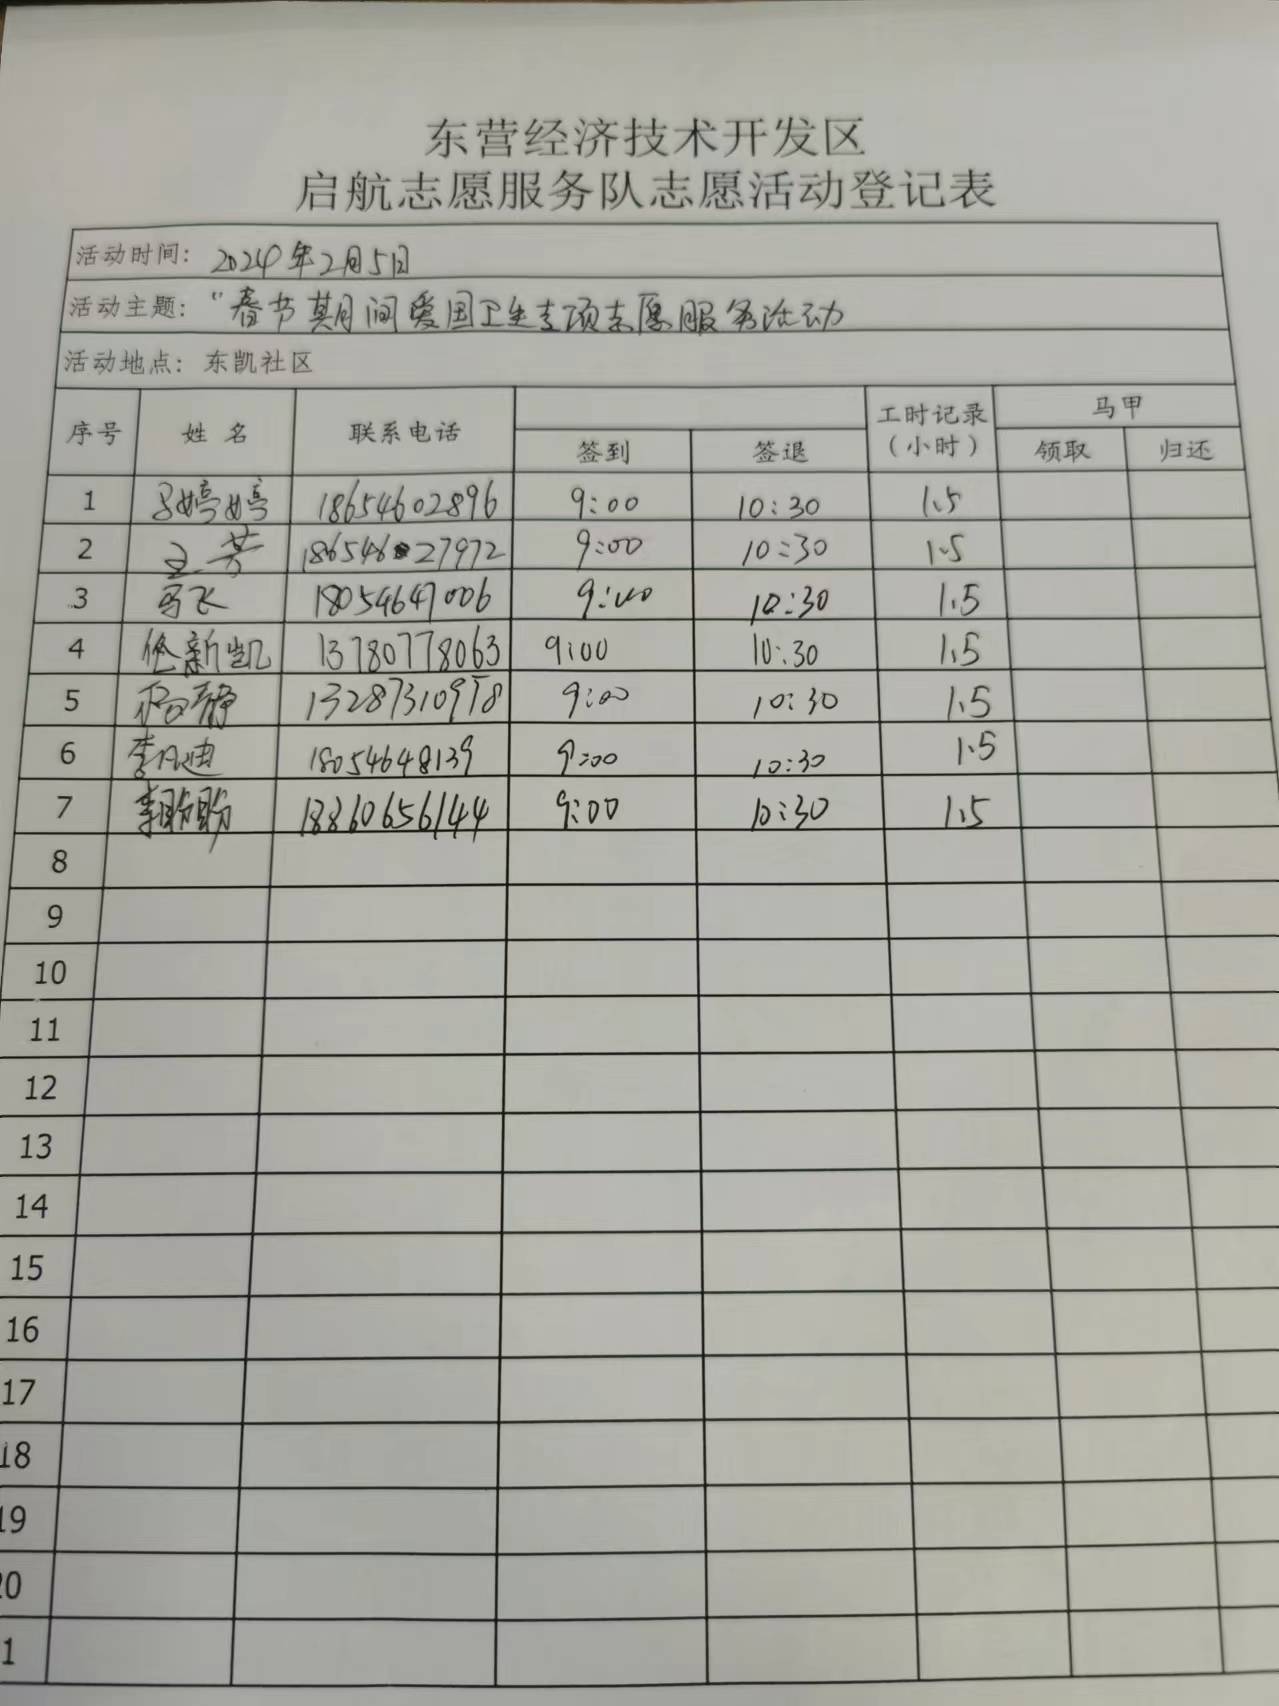 东营经济技术开发区
启航志愿服务队志愿活动登记表
活动时间: 2024年2月5日
活动主题: "春节期间爱国卫生专项志愿服务活动
活动地点: 东凯社区
序号 姓名 联系电话 签到 签退 工时记录(小时) 马甲 领取 归还
1 婷婷 18654602896 9:00 10:30 1.5
2 王芳 18654627972 9:00 10:30 1.5
3 马飞 18054647006 9:00 10:30 1.5
4 新凯 13780778063 9:00 10:30 1.5
5 静 13287310978 9:00 10:30 1.5
6 李凡迪 18054648139 9:00 10:30 1.5
7 李盼盼 18860656144 9:00 10:30 1.5
8
9
10
11
12
13
14
15
16
17
18
19
20
1